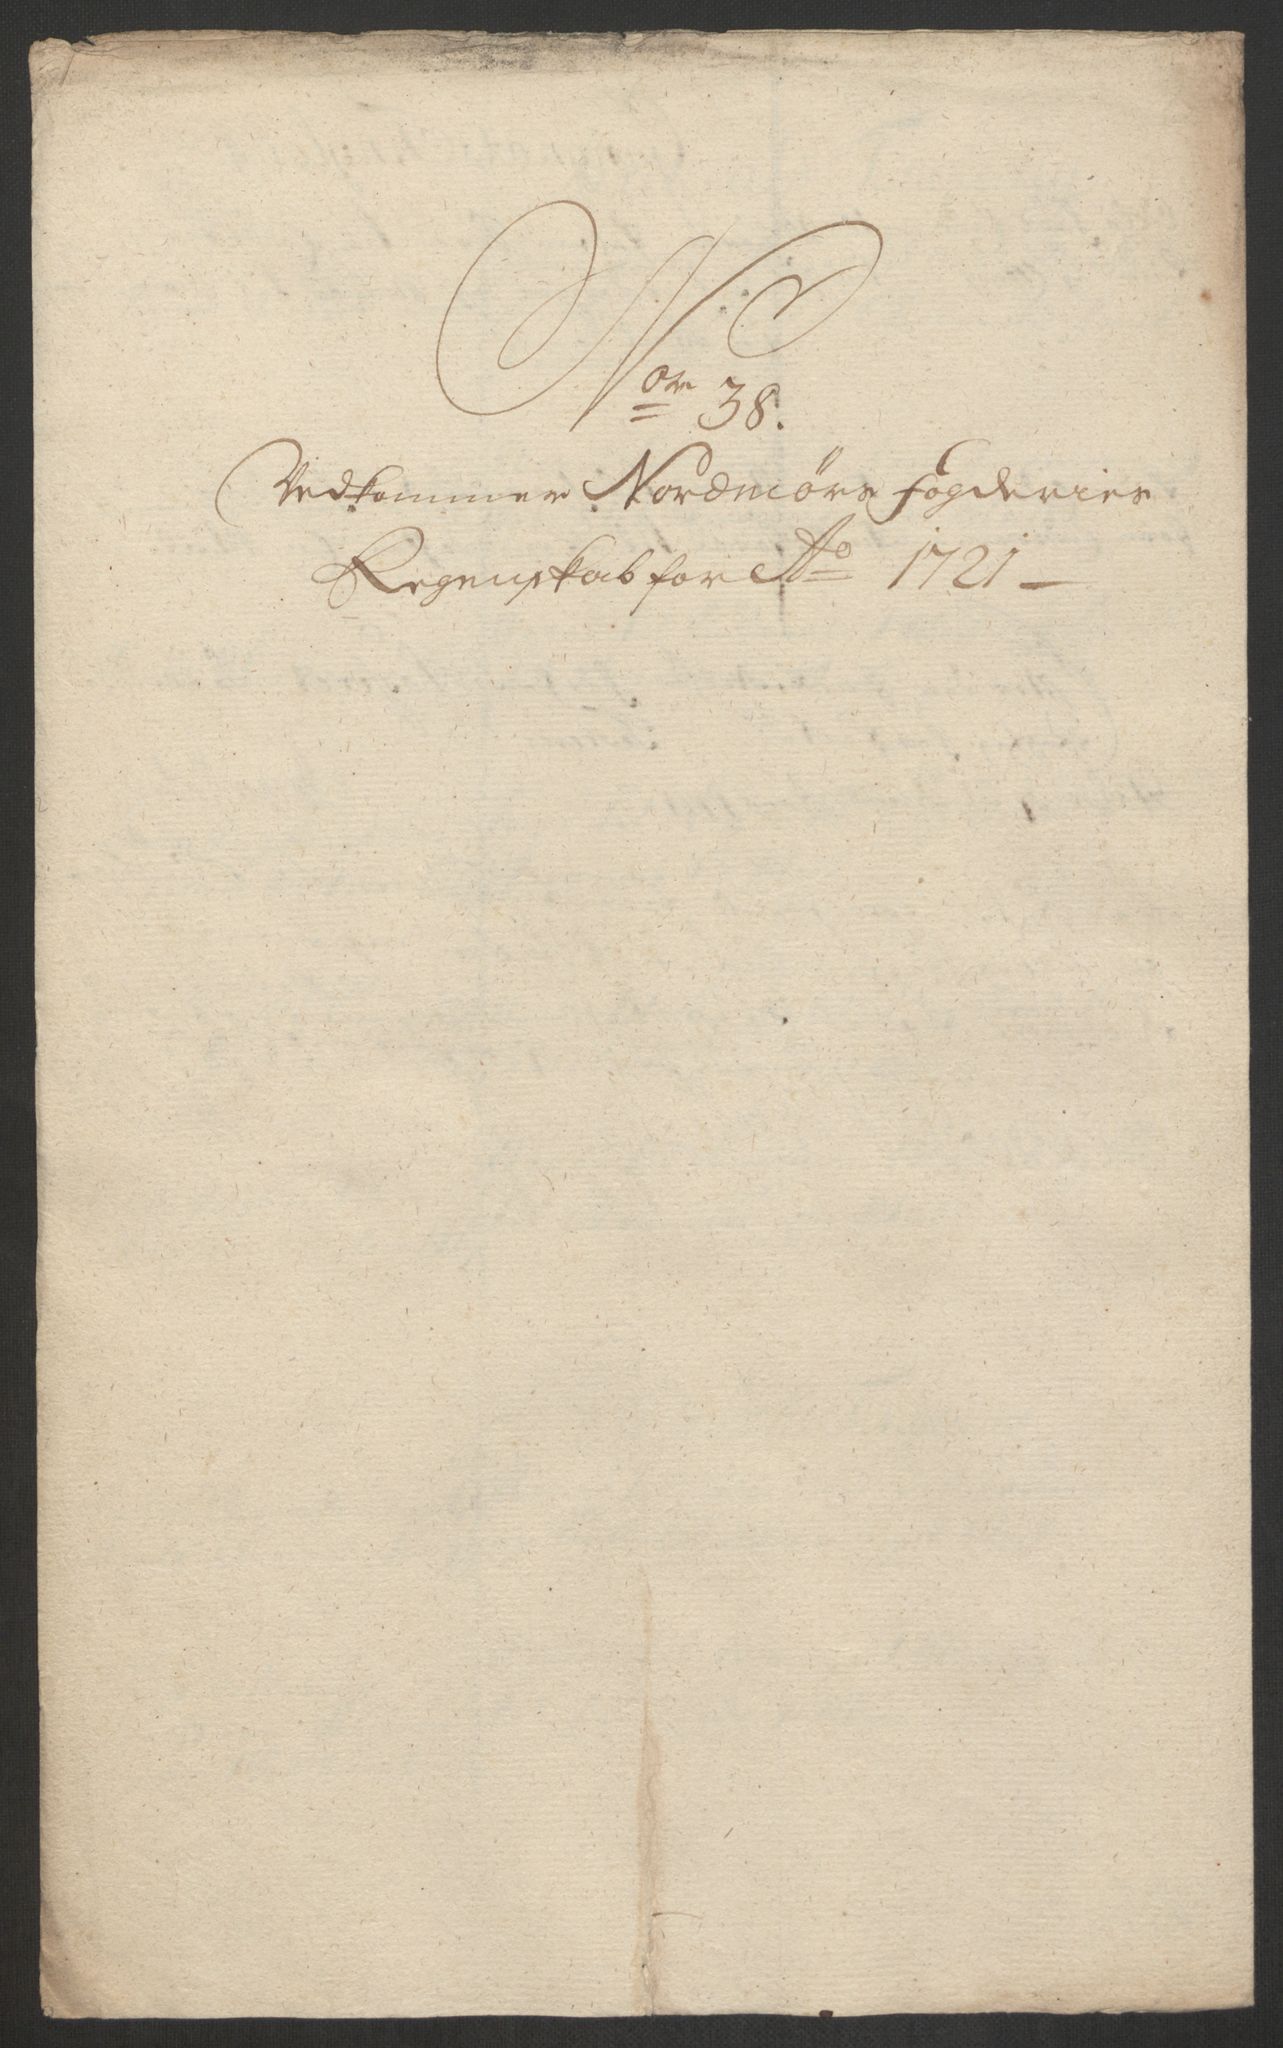 Nor 38.
Vedkommer Nordmørs fogderies
Regenskab for Ao 1721